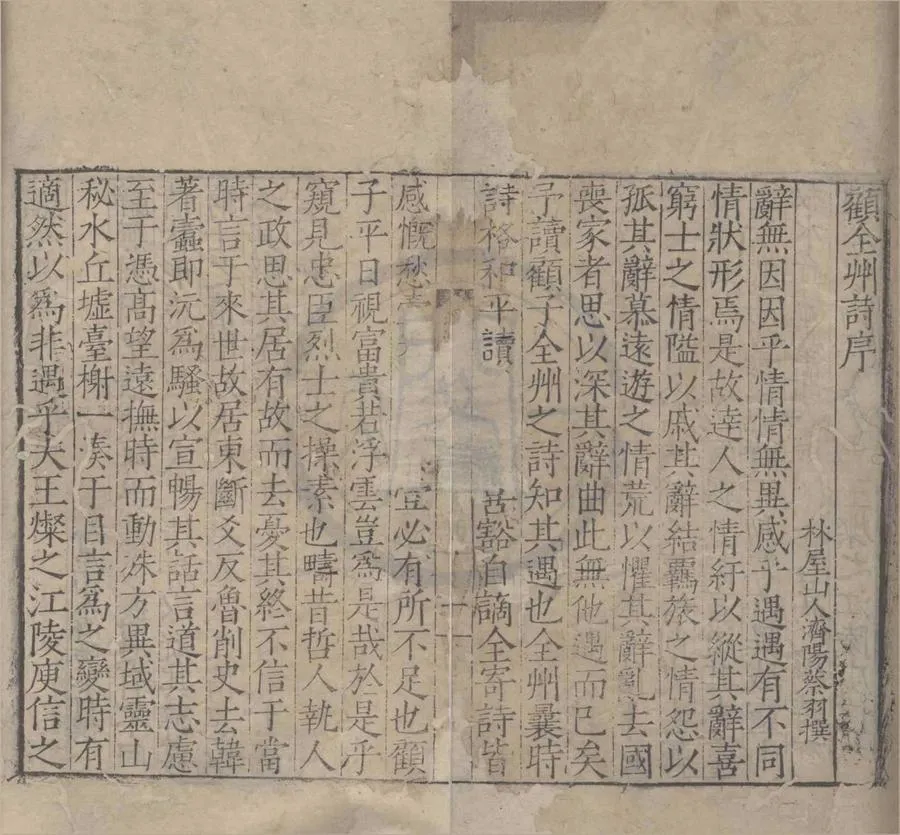 顧全州詩序
林屋山人濟陽蔡羽撰
辭無因因乎情情無異感乎遇遇有不同
情狀形焉是故達人之情紆以縱其辭喜
窮士之情隘以戚其辭結羈旅之情怨以
孤其辭慕遠遊之情荒以懼其辭亂去國
喪家者思以深其辭曲此無他遇而已矣
予讀顧子全州之詩知其遇也全州曩時
詩格和平讀 自謫全寄詩皆
感慨愁 豈必有所不足也顧
子平日視富貴若浮雲豈為是哉於是乎
窺見忠臣烈士之操素也疇昔哲人執人
之政思其居有故而去憂其終不信于當
時言于來世故居東斷爻反魯削史去韓
著蠹即沅為騷以宣暢其話言道其志慮
至于憑髙望遠撫時而動殊方異域靈山
秘水丘墟臺榭一湊于目言為之變時有
適然以為非遇乎夫王燦之江陵庾信之